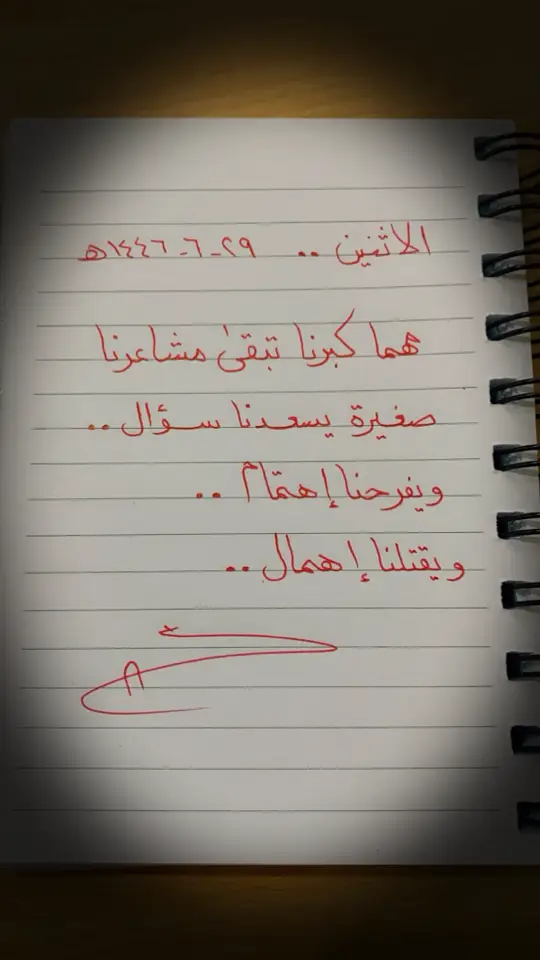 الاثنين .. ٢٩-٦-١٤٤٦هـ
مهما كبرنا تبقىٰ مشاعرنا
صغيرة يسعدنا سؤال ..
ويفرحنا إهتمام ..
ويقتلنا إهمال ..